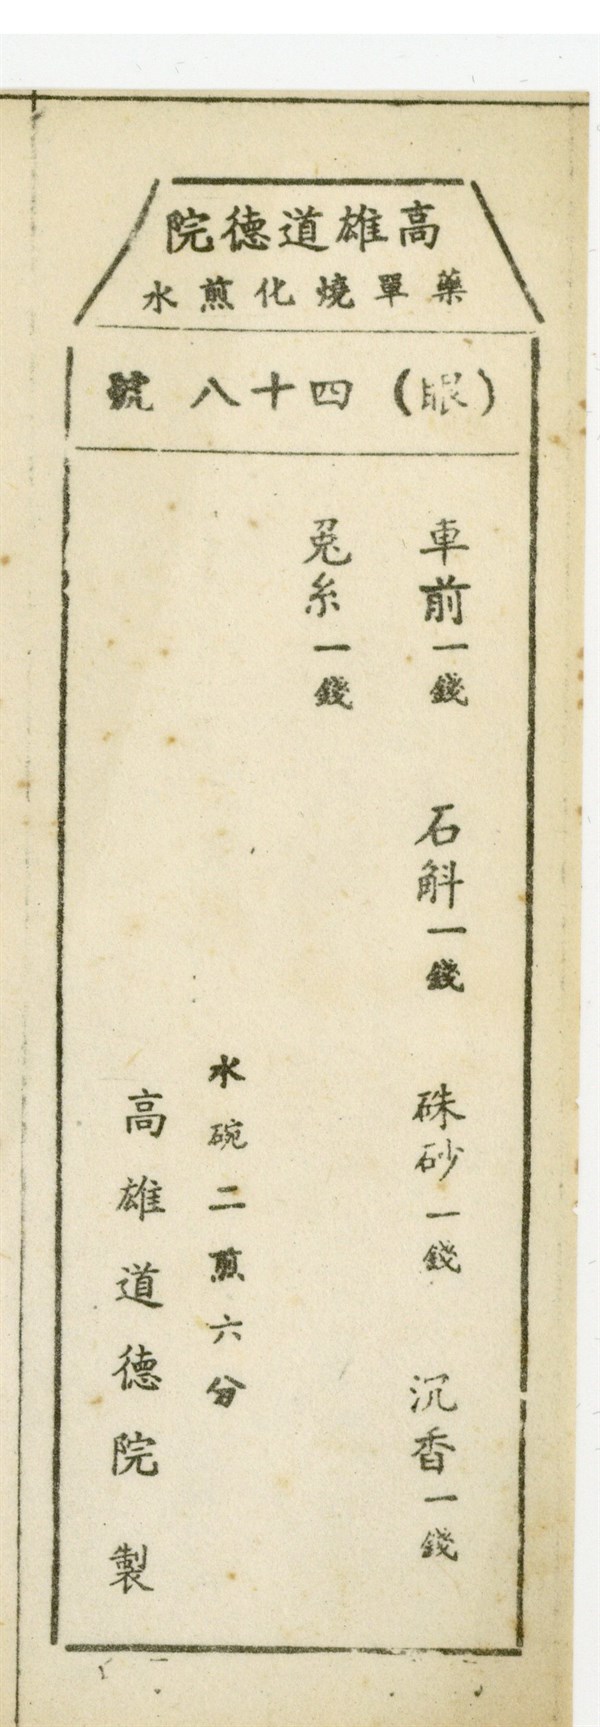 高雄道德院
藥單燒化煎水
(眼)四十八號
車前一錢 石斛一錢 硃砂一錢 沉香一錢
兎糸一錢
水碗二煎六分
高雄道德院製